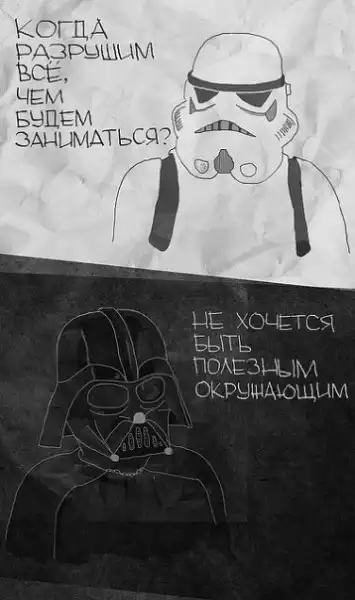 КОГДА
РАЗРУШИМ
ВСЁ,
ЧЕМ
БУДЕМ
ЗАНИМАТЬСЯ?
НЕ ХОЧЕТСЯ
БЫТЬ
ПОЛЕЗНЫМ
ОКРУЖАЮЩИМ